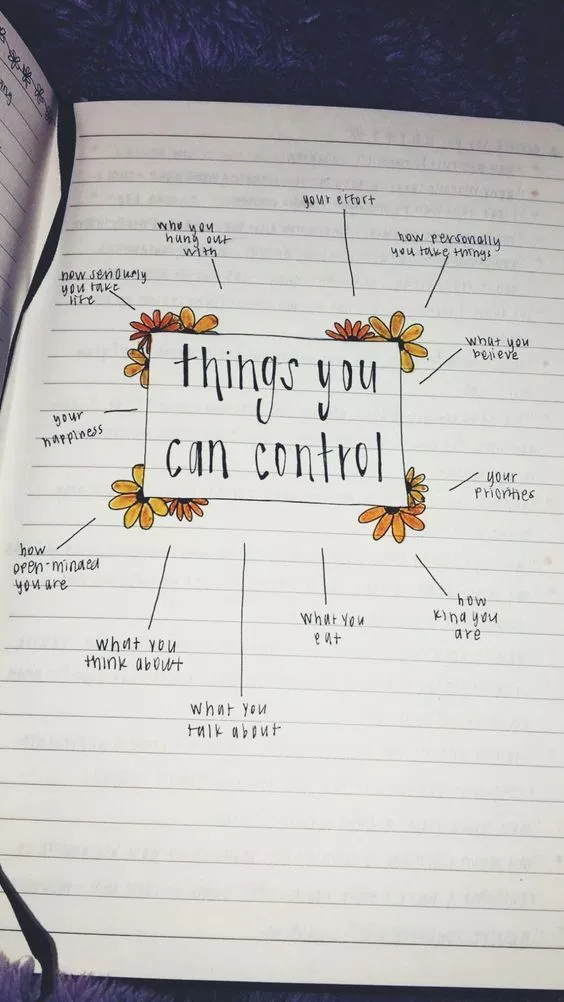 your effort
who you
hang out
with
how personally
you take things
how seriously
you take
life
what you
believe
things you
can control
your
happiness
your
priorities
how
open-minded
you are
how
kind you
are
what you
eat
what you
think about
what you
talk about